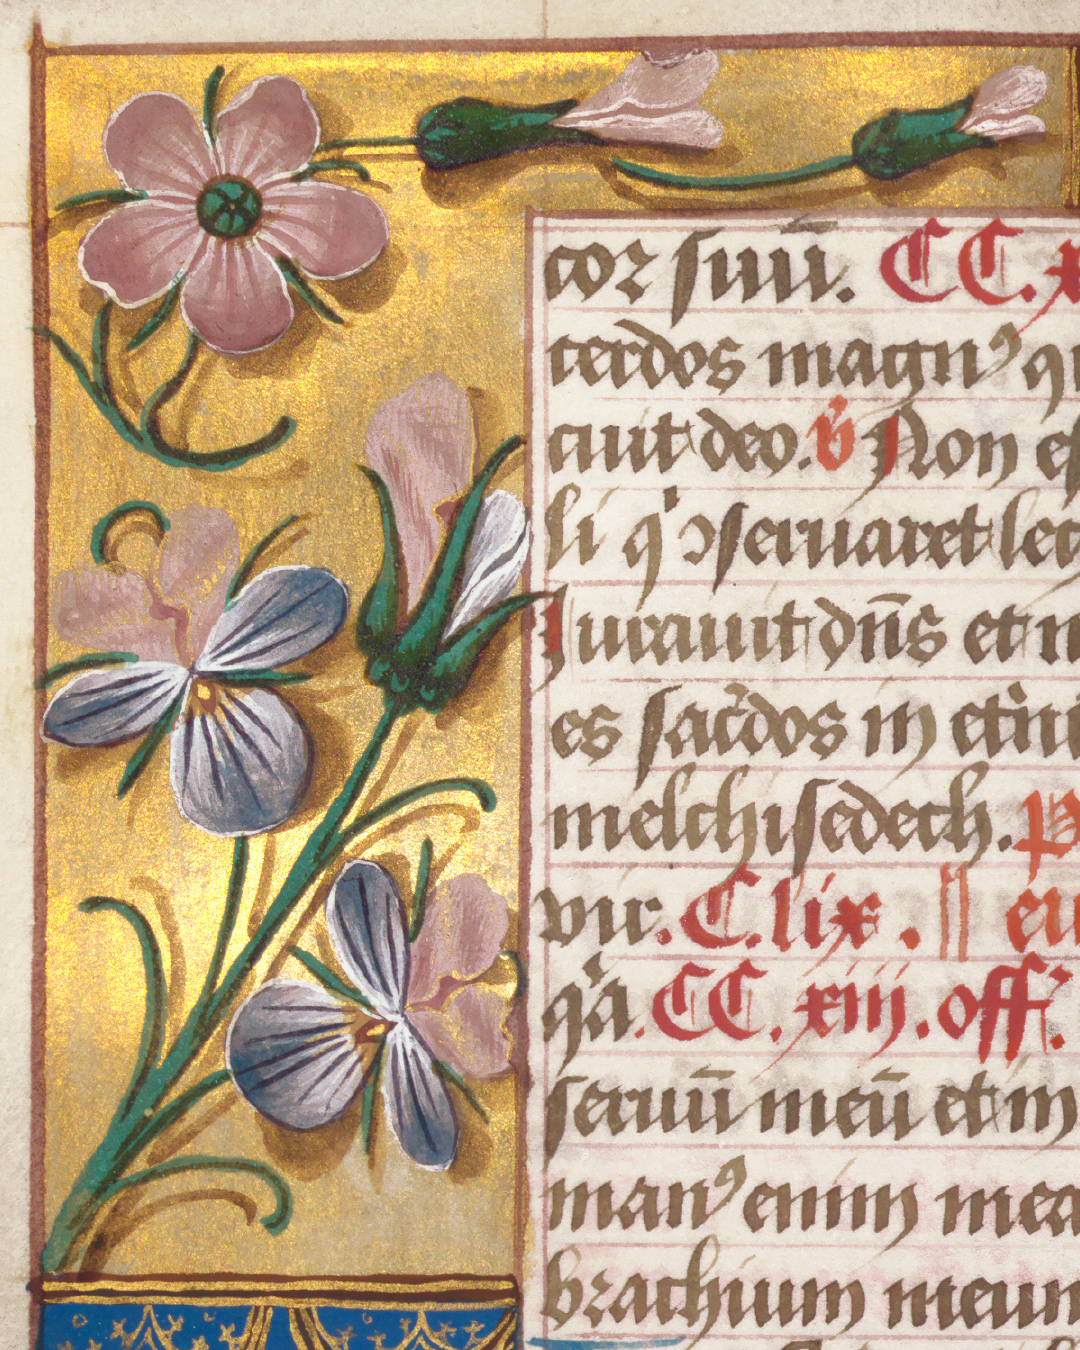 cor suū. CC. x
cerdos magnꝰ q
cuit deo. v̄ Non es
li qͥ ꝯseruaret leg
Jurauit dn̄s et n
es sac̄dos in et̄n
melchisedech. P
vir. C. lix. eu
q̄a. CC. xiij. off.
seruū meū et m
manꝰ enim mea
brachium meum